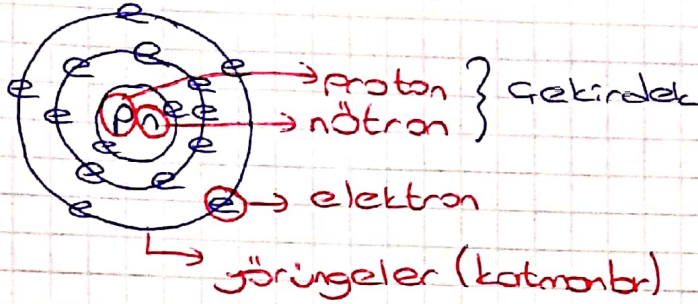 e
e e e
e e e
e p n e e
e e
e e
e e
proton
nötron
Çekirdek
elektron
yörüngeler (katmanlar)